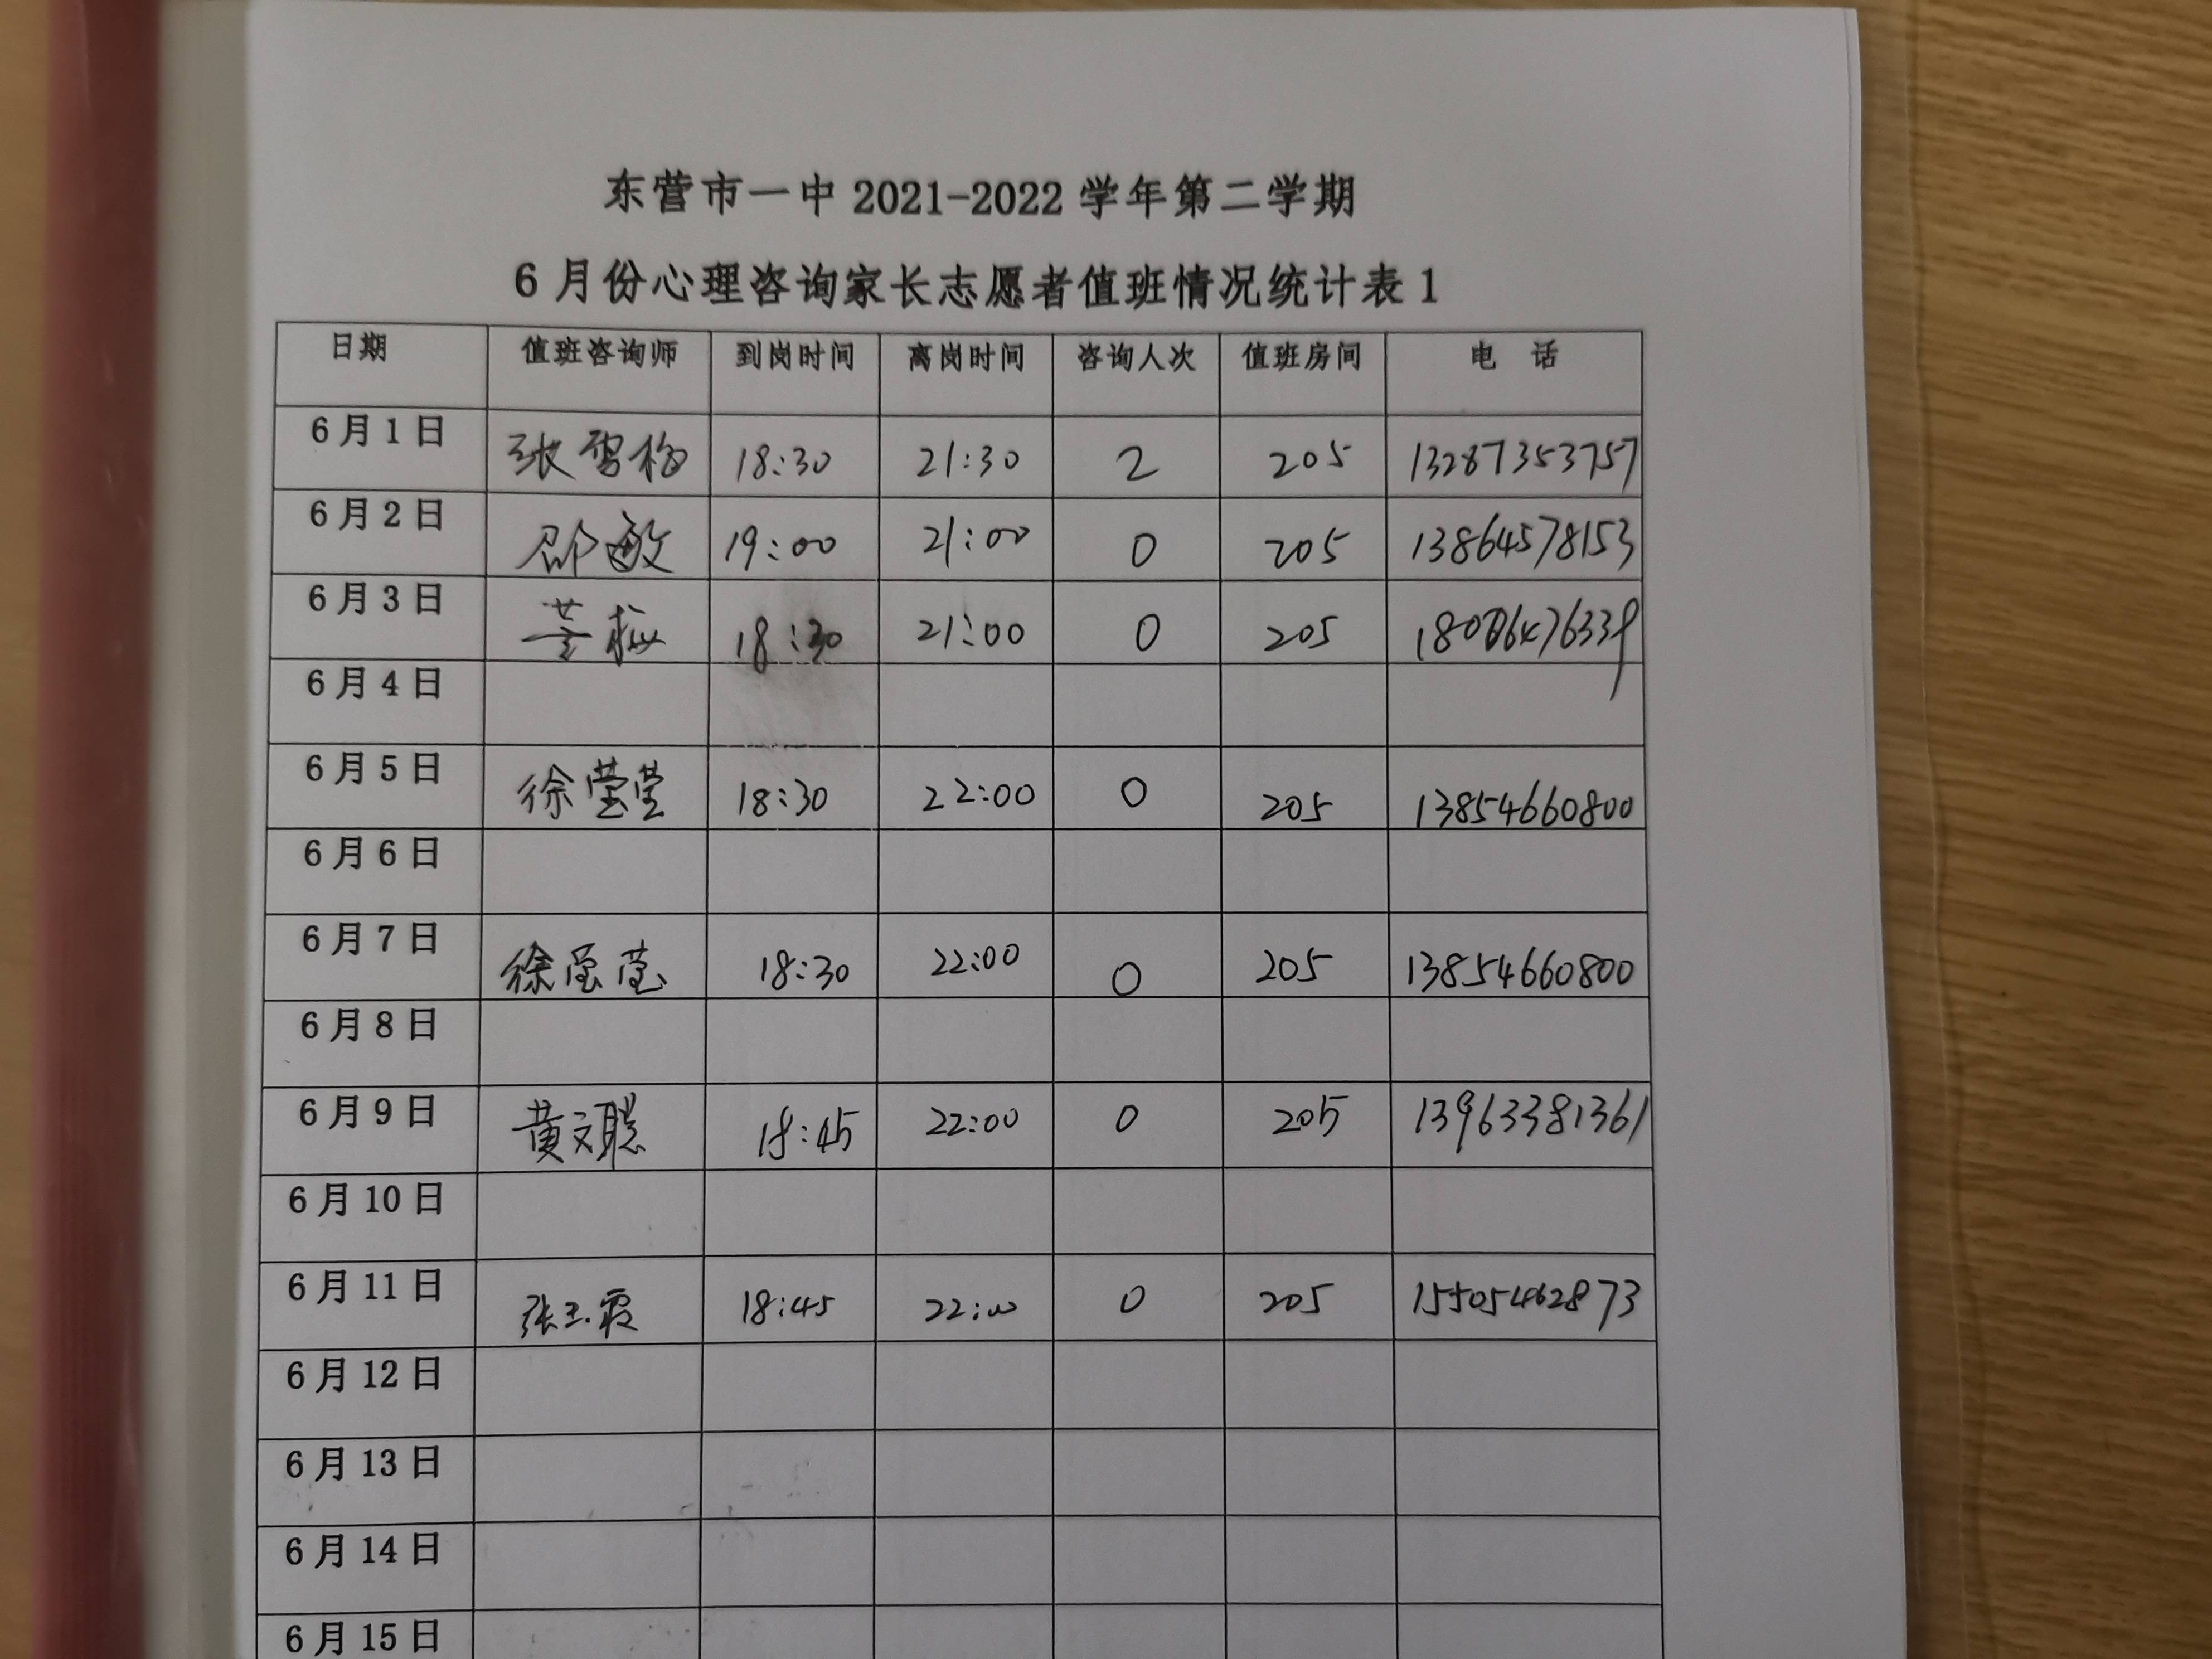 东营市一中 2021-2022 学年第二学期
6 月份心理咨询家长志愿者值班情况统计表 1
日期 值班咨询师 到岗时间 离岗时间 咨询人次 值班房间 电 话
6 月 1 日 张雪梅 18:30 21:30 2 205 13287353757
6 月 2 日 邵敏 19:00 21:00 0 205 13864578153
6 月 3 日 18:30 21:00 0 205
6 月 4 日
6 月 5 日 徐莹莹 18:30 22:00 0 205 13854660800
6 月 6 日
6 月 7 日 徐莹莹 18:30 22:00 0 205 13854660800
6 月 8 日
6 月 9 日 黄文聪 18:45 22:00 0 205 13963381361
6 月 10 日
6 月 11 日 张玉霞 18:45 22:00 0 205 15505462873
6 月 12 日
6 月 13 日
6 月 14 日
6 月 15 日